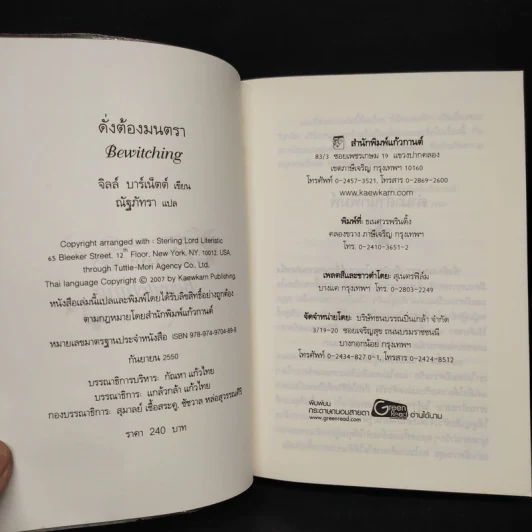 ดั่งต้องมนตรา
Bewitching
จิลล์ บาร์เน็ตต์ เขียน
ณัฐภัทรา แปล
Copyright arranged with : Sterling Lord Literistic
65 Bleeker Street, 12th Floor, New York, NY. 10012, USA.
through Tuttle-Mori Agency Co., Ltd.
Thai language Copyright © 2007 by Kaewkarn Publishing.
หนังสือเล่มนี้แปลและพิมพ์โดยได้รับลิขสิทธิ์อย่างถูกต้อง
ตามกฎหมายโดยสำนักพิมพ์แก้วกานต์
หมายเลขมาตรฐานประจำหนังสือ ISBN 978-974-9704-89-9
กันยายน 2550
บรรณาธิการบริหาร: กัณหา แก้วไทย
บรรณาธิการ: แกล้วกล้า แก้วไทย
กองบรรณาธิการ: สุมาลย์ เชื้อสระคู, ชัชวาล หล่อสุวรรณศิริ
ราคา 240 บาท
สำนักพิมพ์แก้วกานต์
83/3 ซอยเพชรเกษม 19 แขวงปากคลอง
เขตภาษีเจริญ กรุงเทพฯ 10160
โทรศัพท์ 0-2457-3521, โทรสาร 0-2869-2600
www.kaewkarn.com
พิมพ์ที่: ธเนศวรพริ้นติ้ง
คลองขวาง ภาษีเจริญ กรุงเทพฯ
โทร. 0-2410-3651-2
เพลตสีและขาวดำโดย: สุเนตรฟิล์ม
บางแค กรุงเทพฯ โทร. 0-2803-2249
จัดจำหน่ายโดย: บริษัทธนบรรณปิ่นเกล้า จำกัด
3/19-20 ซอยเจริญสุข ถนนบรมราชชนนี
บางกอกน้อย กรุงเทพฯ
โทรศัพท์ 0-2434-8270-1, โทรสาร 0-2424-8512
พิมพ์บน
กระดาษถนอมสายตา Green Read อ่านได้นาน
www.greenread.com